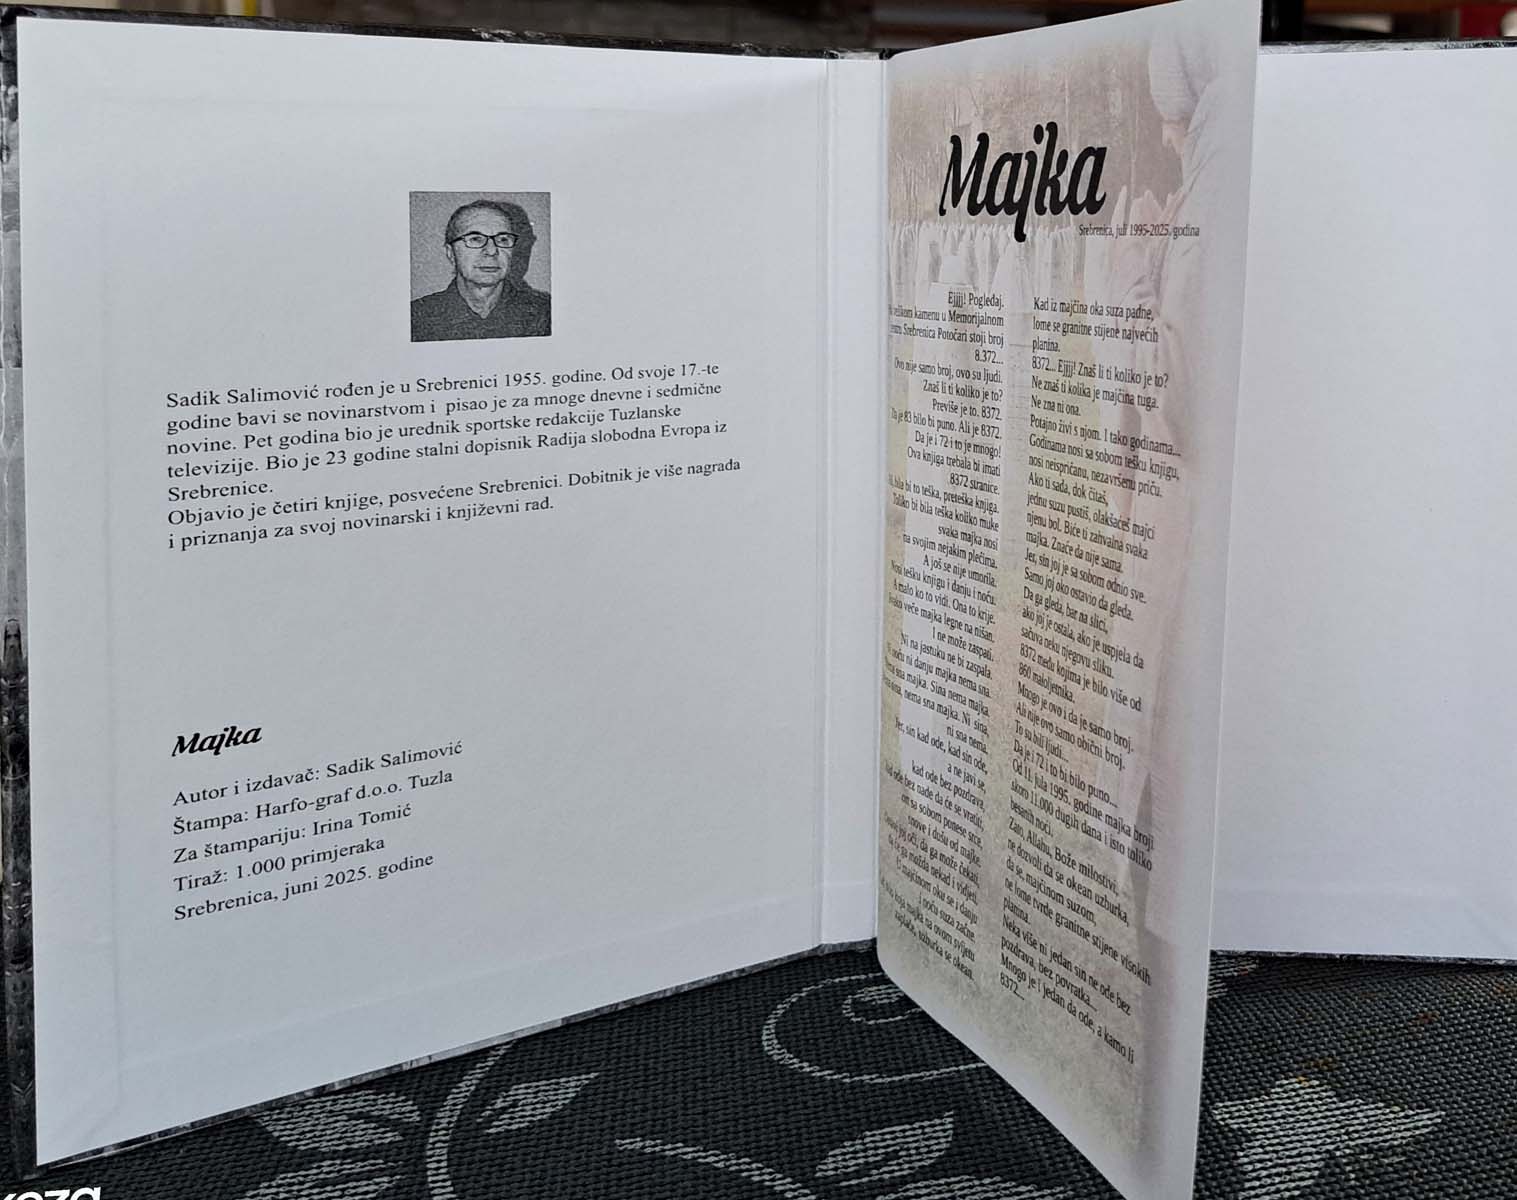 Sadik Salimović rođen je u Srebrenici 1955. godine. Od svoje 17.-te
godine bavi se novinarstvom i pisao je za mnoge dnevne i sedmične
novine. Pet godina bio je urednik sportske redakcije Tuzlanske
televizije. Bio je 23 godine stalni dopisnik Radija slobodna Evropa iz
Srebrenice.
Objavio je četiri knjige, posvećene Srebrenici. Dobitnik je više nagrada
i priznanja za svoj novinarski i književni rad.
Majka
Autor i izdavač: Sadik Salimović
Štampa: Harfo-graf d.o.o. Tuzla
Za štampariju: Irina Tomić
Tiraž: 1.000 primjeraka
Srebrenica, juni 2025. godine
Majka
Srebrenica, juli 1995-2025. godina
Ejjjj! Pogledaj.
kamenu u Memorijalnom
Srebrenica Potočari stoji broj
8.372...
Ovo nije samo broj, ovo su ljudi.
Znaš li ti koliko je to?
Previše je to. 8372.
je 83 bilo bi puno. Ali je 8372.
Da je i 72 i to je mnogo!
Ova knjiga trebala bi imati
8372 stranice.
bila bi to teška, preteška knjiga.
Toliko bi bila teška koliko muke
svaka majka nosi
na svojim nejakim plećima.
A još se nije umorila.
Nosi tešku knjigu i danju i noću.
A malo ko to vidi. Ona to krije.
veče majka legne na nišan.
I ne može zaspati.
Ni na jastuku ne bi zaspala.
noću ni danju majka nema sna.
sna majka. Sina nema majka.
nema sna majka. Ni sina,
ni sna nema.
Jer, sin kad ode, kad sin ode,
a ne javi se,
kad ode bez pozdrava,
ode bez nade da će se vratiti,
on sa sobom ponese srce,
snove i dušu od majke.
joj oči, da ga može čekati,
da će ga možda nekad i vidjeti.
U majčinom oku se i danju
i noću suza začne.
koja majka na ovom svijetu
zaplače, uzburka se okean.
Kad iz majčina oka suza padne,
lome se granitne stijene najvećih
planina.
8372... Ejjjj! Znaš li ti koliko je to?
Ne znaš ti kolika je majčina tuga.
Ne zna ni ona.
Potajno živi s njom. I tako godinama...
Godinama nosi sa sobom tešku knjigu,
nosi neispričanu, nezavršenu priču.
Ako ti sada, dok čitaš,
jednu suzu pustiš, olakšaćeš majci
njenu bol. Biće ti zahvalna svaka
majka. Znaće da nije sama.
Jer, sin joj je sa sobom odnio sve.
Samo joj oko ostavio da gleda.
Da ga gleda, bar na slici,
ako joj je ostala, ako je uspjela da
sačuva neku njegovu sliku.
8372 među kojima je bilo više od
860 maloljetnika.
Mnogo je ovo i da je samo broj.
Ali nije ovo samo obični broj.
To su bili ljudi...
Da je i 72 i to bi bilo puno...
Od 11. jula 1995. godine majka broji
skoro 11.000 dugih dana i isto toliko
besanih noći.
Zato, Allahu, Bože milostivi,
ne dozvoli da se okean uzburka,
da se, majčinom suzom,
ne lome tvrde granitne stijene visokih
planina.
Neka više ni jedan sin ne ode bez
pozdrava, bez povratka...
Mnogo je i jedan da ode, a kamo li
8372...